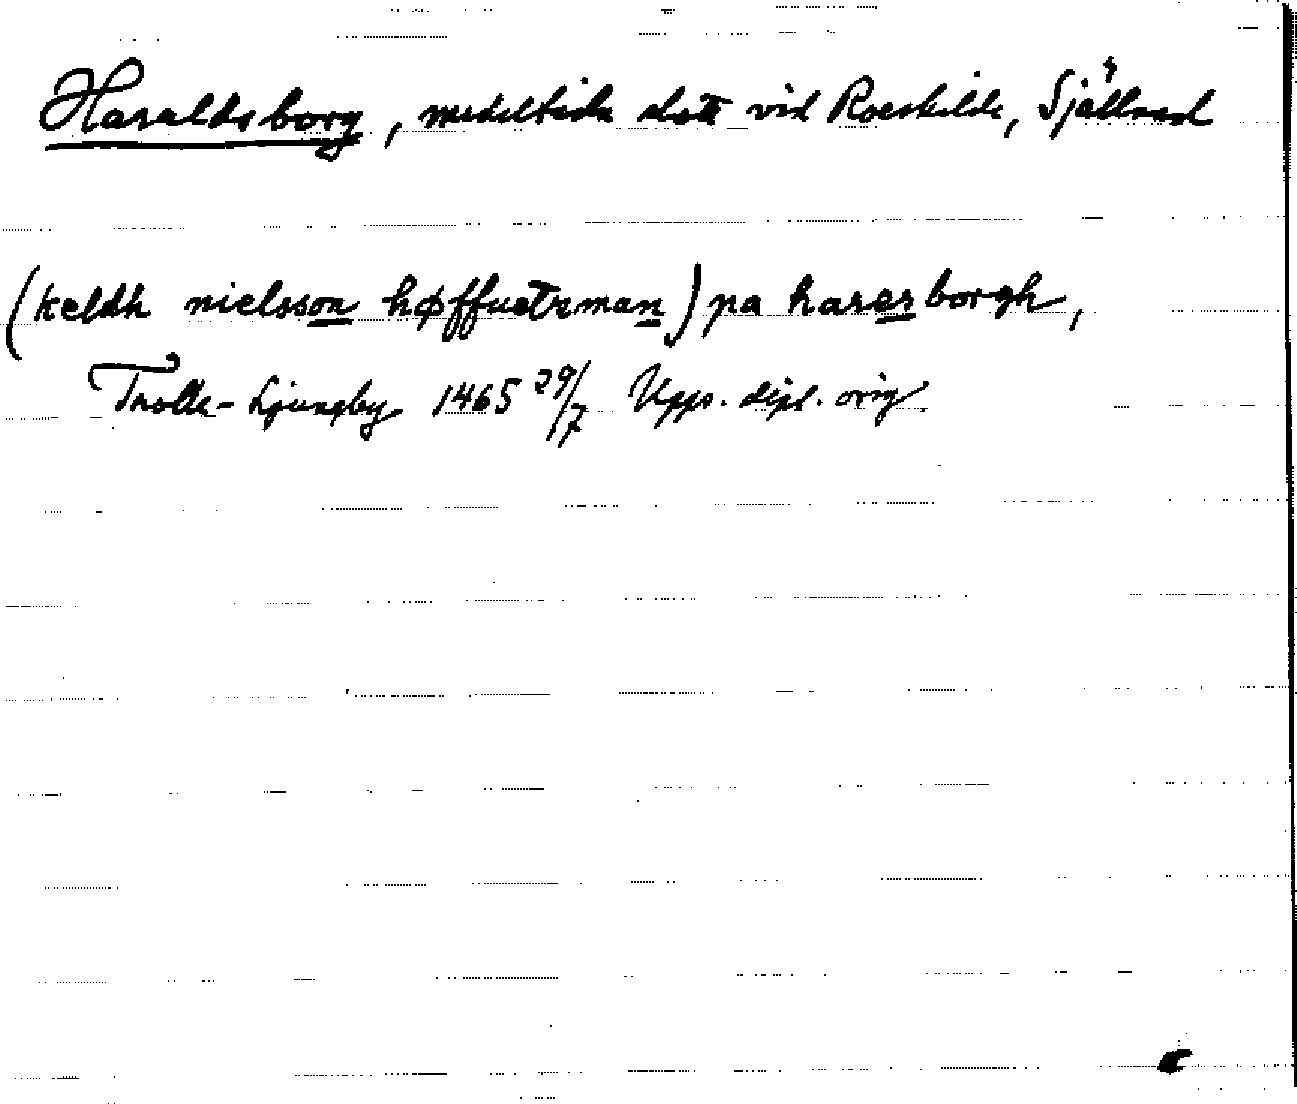 Haraldsborg, medeltida slott vid Roeskilde, Själland
(keldh nielsson høffuetzman) pa harersborgh,
Trolle-Ljungby 1465 29/7 Upps. dipl. orig